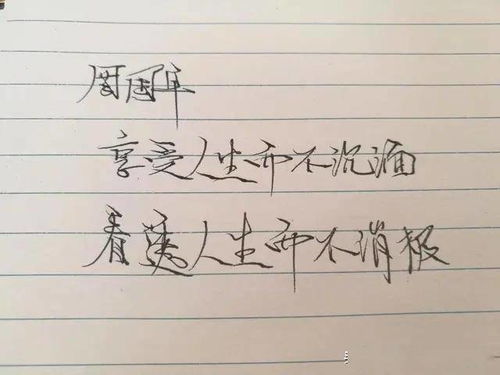 周国平
享受人生而不沉湎
看透人生而不消极